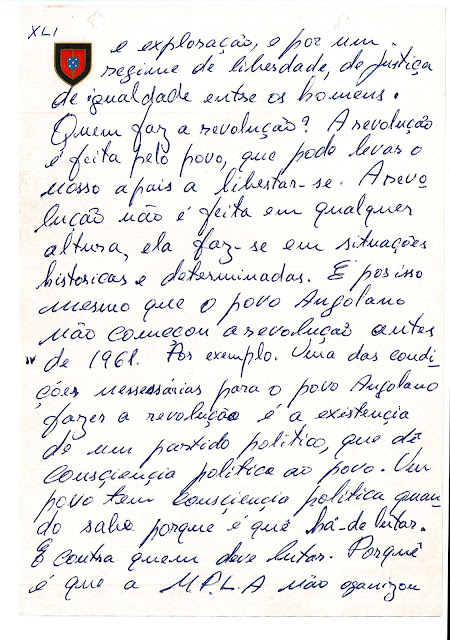 XLI
e exploração, e por um
regime de liberdade, de justiça
de igualdade entre os homens.
Quem faz a revolução? A revolução
é feita pelo povo, que pode levar o
nosso apais a libertar-se. A revo
lução não é feita em qualquer
altura, ela faz-se em situações
historicas e determinadas. E por isso
mesmo que o povo Angolano
não começou a revolução antes
de 1961. Por exemplo. Uma das condi-
ções nessessárias para o povo Angolano
fazer a revolução é a existencia
de um partido politico, que dê
consciencia politica ao povo. Um
povo tem consciencia politica quan-
do sabe porque é que há-de lutar.
E contra quem deve lutar. Porquê
é que a M.P.L.A não organizou